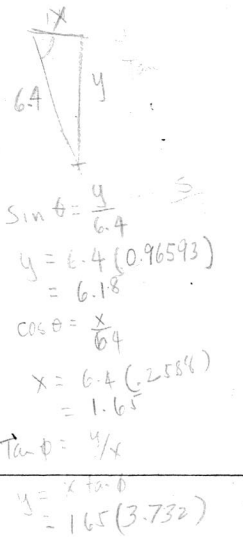 x
6.4
y
Sin θ = y/6.4
y = 6.4 (0.96593)
= 6.18
cos θ = x/64
x = 6.4 (.2588)
= 1.65
Tan φ = y/x
y = x tan φ
= 165 (3.732)